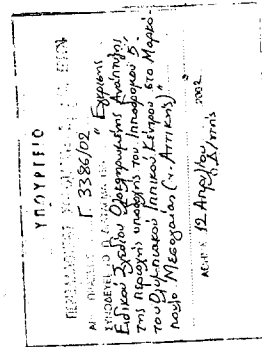 ΥΠΟΥΡΓΕΙΟ
Γ. 3386/02
ΣΥΝΟΔΕΥΕΙ "Έγκρισης
Ειδικού Σχεδίου Ολοκληρωμένης Ανάπτυξης
της περιοχής υποδοχής του Ιπποδρόμου &
του Ολυμπιακού Ιππικού Κέντρου στο Μαρκό-
πουλο Μεσογαίας (ν. Αττικής)"
12 Απριλίου 2002